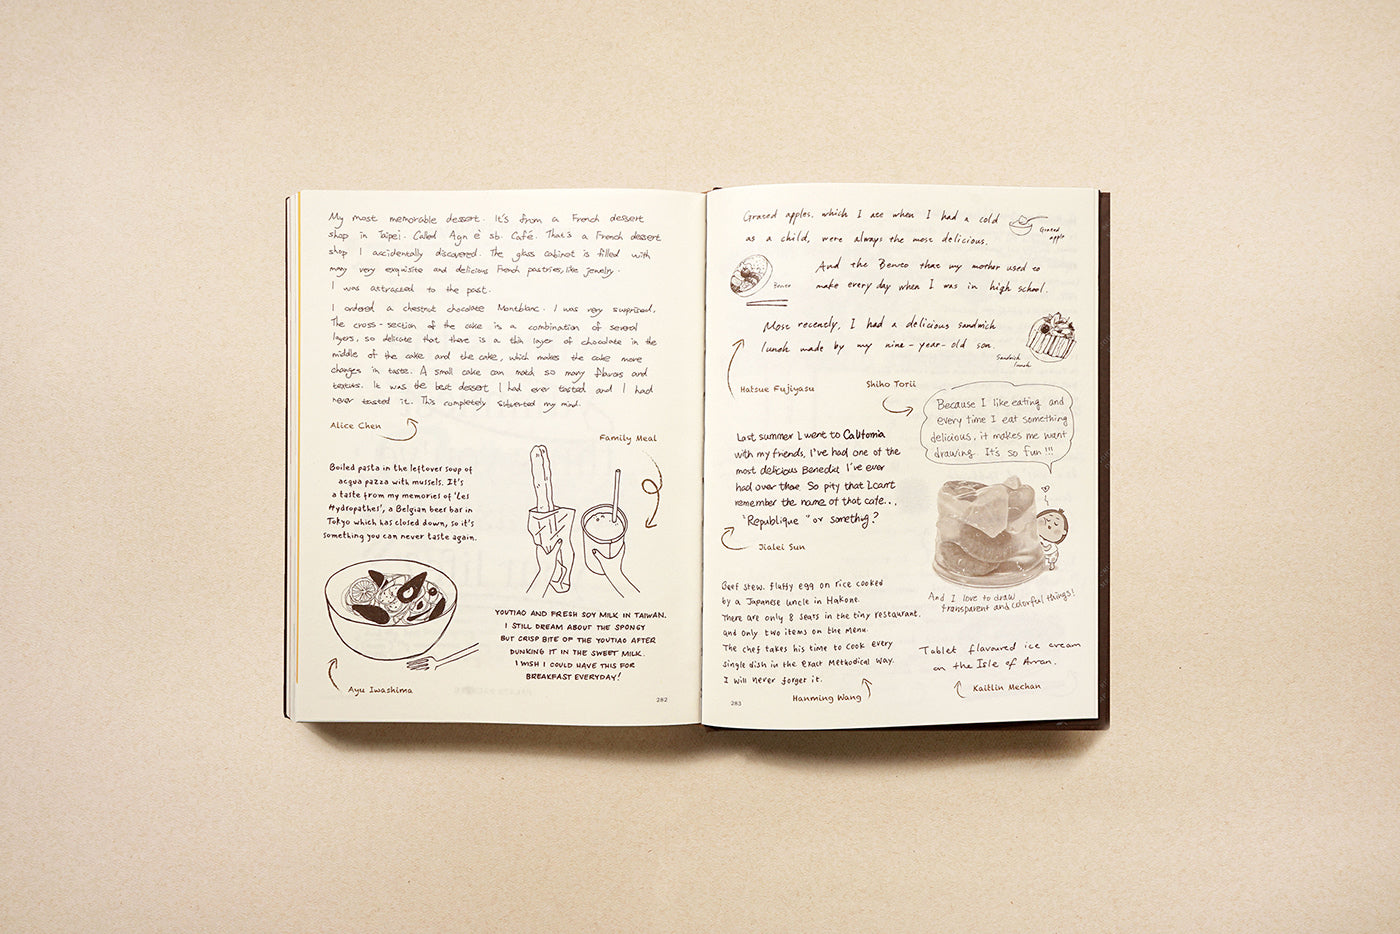 My most memorable dessert. It's from a French dessert
shop in Taipei. Called Agn è sb. Café. That's a French dessert
shop I accidentally discovered. The glass cabinet is filled with
many very exquisite and delicious French pastries, like jewelry.
I was attracted to the past.
I ordered a chestnut chocolate Montblanc. I was very surprized.
The cross-section of the cake is a combination of several
layers, so delicate that there is a thin layer of chocolate in the
middle of the cake and the cake, which makes the cake more
changes in taste. A small cake can match so many flavors and
texturs. It was the best dessert I had ever tasted and I had
never tasted it. This completely subverted my mind.
Alice Chen
Family Meal
Boiled pasta in the leftover soup of
acqua pazza with mussels. It's
a taste from my memories of 'Les
Hydropathes', a Belgian beer bar in
Tokyo which has closed down, so it's
something you can never taste again.
Ayu Iwashima
YOUTIAO AND FRESH SOY MILK IN TAIWAN.
I STILL DREAM ABOUT THE SPONGY
BUT CRISP BITE OF THE YOUTIAO AFTER
DUNKING IT IN THE SWEET MILK.
I WISH I COULD HAVE THIS FOR
BREAKFAST EVERYDAY!
282
Grated apples, which I ate when I had a cold
as a child, were always the most delicious.
Grated
apple
And the Bento that my mother used to
make every day when I was in high school.
Bento
Most recently, I had a delicious sandwich
lunch made by my nine-year-old son.
Sandwich
lunch
Hatsue Fujiyasu
Shiho Torii
Because I like eating and
every time I eat something
delicious, it makes me want
drawing. It's so fun!!!
And I love to draw
transparent and colorful things!
Last summer I went to California
with my friends, I've had one of the
most delicious Benedict I've ever
had over there. So pity that I can't
remember the name of that cafe...
"Republique" or something?
Jialei Sun
Beef stew, fluffy egg on rice cooked
by a Japanese uncle in Hakone.
There are only 8 seats in the tiny restaurant,
and only two items on the menu.
The chef takes his time to cook every
single dish in the exact methodical way.
I will never forget it.
Hanming Wang
Tablet flavoured ice cream
on the Isle of Arran.
Kaitlin Mechan
283